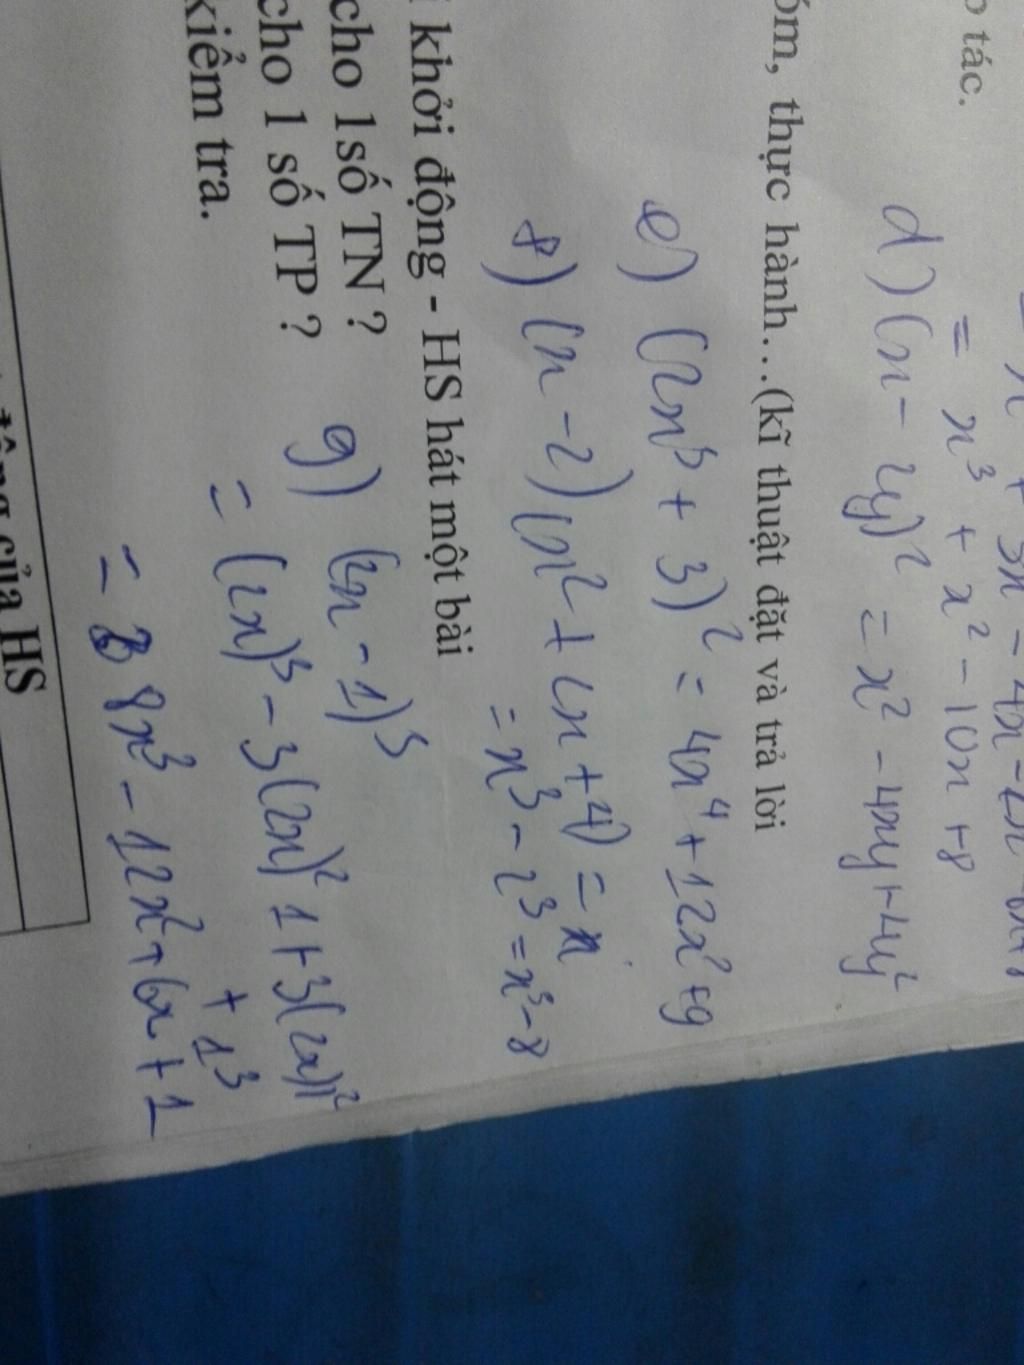 o tác.
= x³ + x² - 10x + 8
d) (x - 2y)² = x² - 4xy + 4y²
óm, thực hành…(kĩ thuật đặt và trả lời
e) (2x³ + 3)² = 4x⁴ + 12x² + 9
f) (x - 2)(x² + 2x + 4) = x
= x³ - 2³ = x³ - 8
i khởi động - HS hát một bài
cho 1số TN ?
cho 1 số TP ?
kiểm tra.
g) (2x - 1)³
= (2x)³ - 3(2x)² 1 + 3(2x)1²
+ 1³
= 8x³ - 12x² + 6x + 1
động của HS